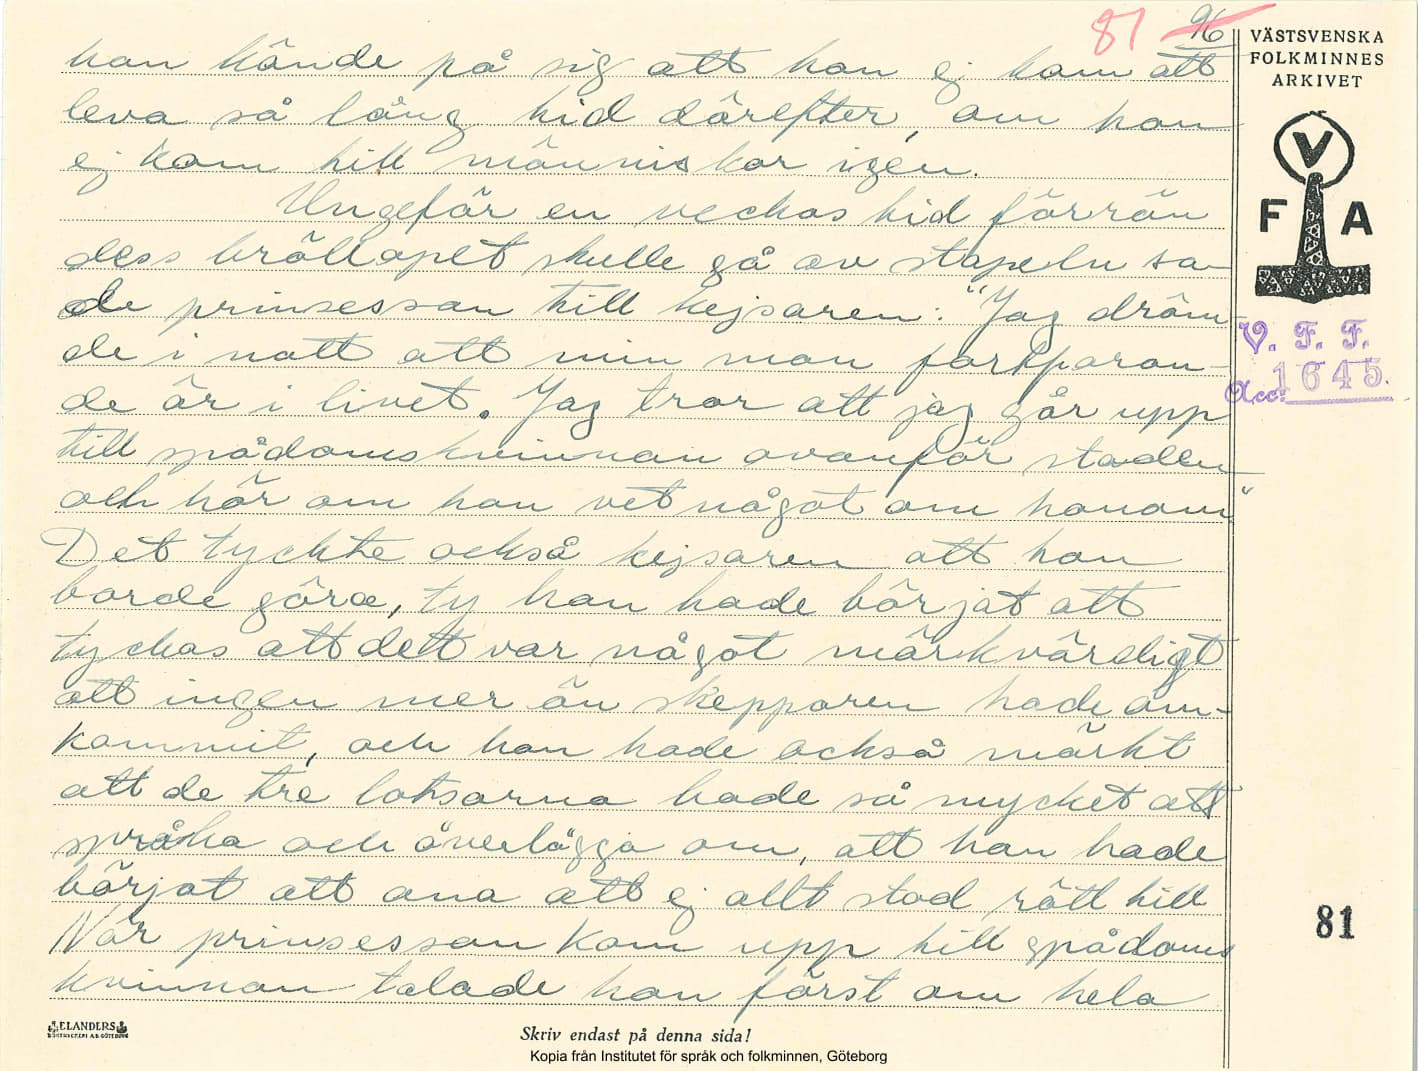 81 96
VÄSTSVENSKA
FOLKMINNES
ARKIVET
han kände på sig att han ej kom att
leva så lång tid därefter, om han
ej kom till människor igen.
Ungefär en veckas tid förrän
dess bröllopet skulle gå av stapeln sa-
de prinsessan till kejsaren: "Jag dröm-
de i natt att min man fortfaran-
de är i livet. Jag tror att jag går upp
till spådomskvinnan ovanför staden
och hör om hon vet något om honom."
Det tyckte också kejsaren att hon
borde göra, ty han hade börjat att
tyckas att dett var något märkvärdigt
att ingen mer än skepparen hade åm-
kommit, och han hade också märkt
att de tre lotsarna hade så mycket att
språka och överlägga om, att han hade
börjat att ana att ej allt stod rätt till
När prinsessan kom upp till spådoms
kvinnan talade hon först om hela
V
F A
V. F. F.
Acc. 1645.
81
ELANDERS
BOKTRYCKERI A.B. GÖTEBORG
Skriv endast på denna sida!
Kopia från Institutet för språk och folkminnen, Göteborg